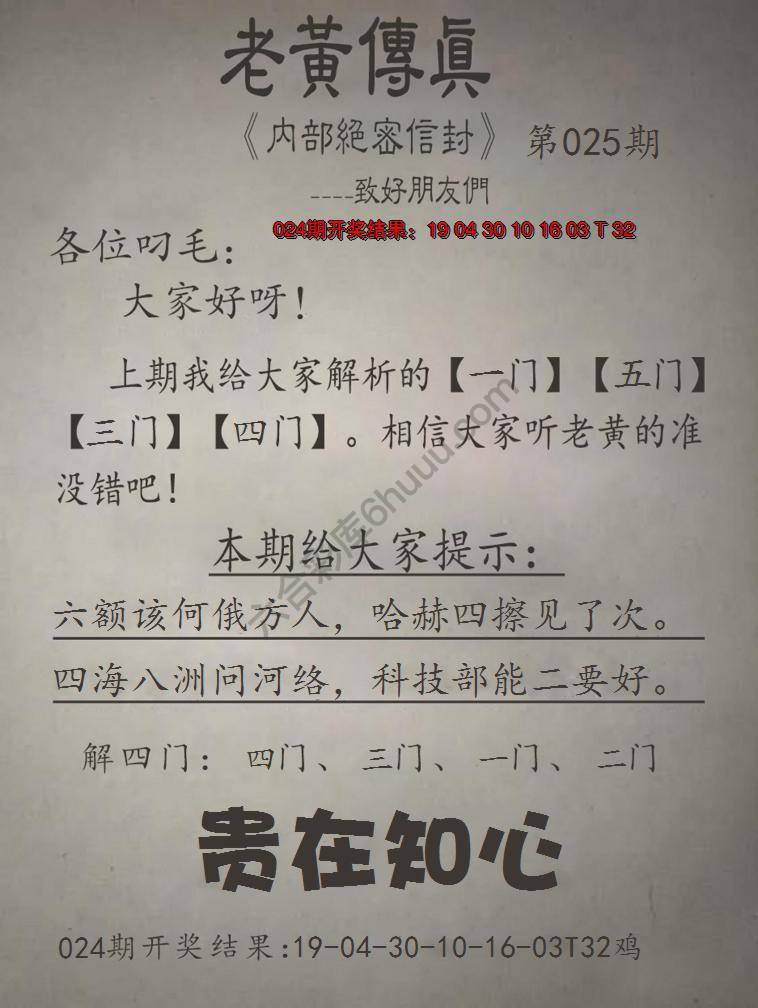 老黃傳眞
《内部絕密信封》 第025期
----致好朋友們
024期开奖结果：19 04 30 10 16 03 T 32
各位叼毛：
大家好呀！
上期我给大家解析的【一门】【五门】
【三门】【四门】。相信大家听老黄的准
没错吧！
本期给大家提示：
六额该何俄方人，哈赫四擦见了次。
四海八洲问河络，科技部能二要好。
解四门： 四门、 三门、 一门、 二门
贵在知心
024期开奖结果:19-04-30-10-16-03T32鸡
六合彩库6huuu.com